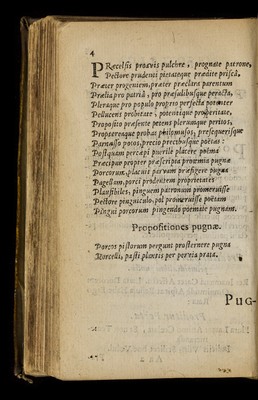 4
PRæcelsis proavis pulchre, prognate patrone,
Pectore prudenti pietateque prædite prisca,
Præter progeniem, præter præclara parentum
Prælia pro patriâ, pro præsulibusque peracta,
Pleraque pro populo proprio perfecta potenter
Pellucens probitate, potentique properitate,
Proposito præsente petens plerumque peritos,
Propterea que probas philomusos, prosequerisque
Parnasso potos, precio precibusque poëtas:
Postquam percæpi puerile placere poëma
Præcipuè propter præscripta proœmia pugnæ
Porcorum, placuit parvam præfigere pugnæ
Pagellam, porci prudentem proprietates
Plausibiles, pinguem patronum promeruisse
Pectore pinguiculo, pol promeruisse poëtam
Pingui porcorum pingendo poëmate pugnam.
Propositiones pugnæ.
Porcos pistorum pergunt prosternere pugna
Porcelli, pasti plantis per pervia prata.
PUG-